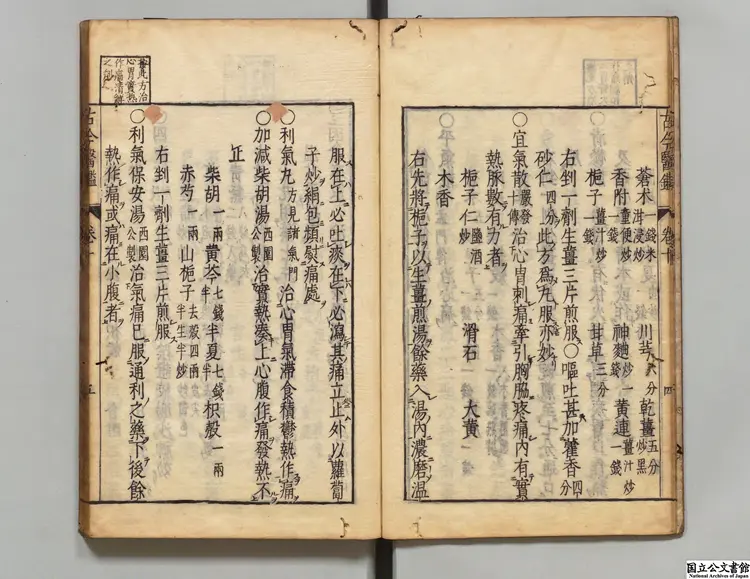 蒼术一錢米泔浸炒 川芎八分 乾薑五分炒黑
香附一錢童便炒 神麯一錢炒 黃連一錢薑汁炒
梔子一錢薑汁炒 甘草三分
右剉一劑生薑三片煎服〇嘔吐甚加藿香四分
砂仁四分此方爲丸服亦妙
〇宜氣散嚴發十傳治心胃刺痛牽引胸脇疼痛內有實
熱脉數有力者
梔子仁鹽酒炒 滑石 大黃
木香
右先將梔子以生薑煎湯餘藥入湯內濃磨溫
服在上必吐痰在下必瀉其痛立止外以蘿蔔
子炒絹包頻熨痛處
〇利氣丸方見諸氣門治心胃氣滯食積鬱熱作痛
〇加減柴胡湯西園公製治實熱湊上心腹作痛發熱不
止
柴胡一兩 黃芩七錢半 半夏七錢半 枳殼一兩
赤芍一兩 山梔子去殼四兩半生半炒
右剉一劑生薑三片煎服
〇利氣保安湯西園公製治氣痛已服通利之藥下後餘
熱作痛或痛在小腹者
古今醫鑑
卷十
五
此方治
心胃實熱
作痛清鬱
之劑
古今醫鑑
卷十
四
国立公文書館
National Archives of Japan